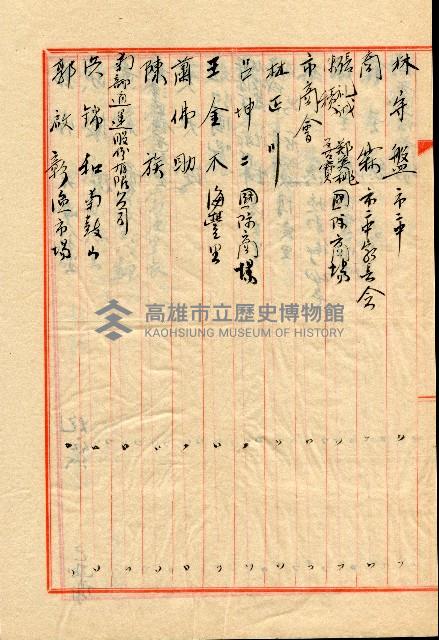 林守盤 市中
周霖 市中家長会
國際商場
市商會
杜正川
呂坤二 國际商場
王金木 海豐里
蕭佛助
陳族
南部通運股份有限公司
吳錦和 南鼓山
郭啟彰 漁市場
高雄市立歷史博物館
KAOHSIUNG MUSEUM OF HISTORY